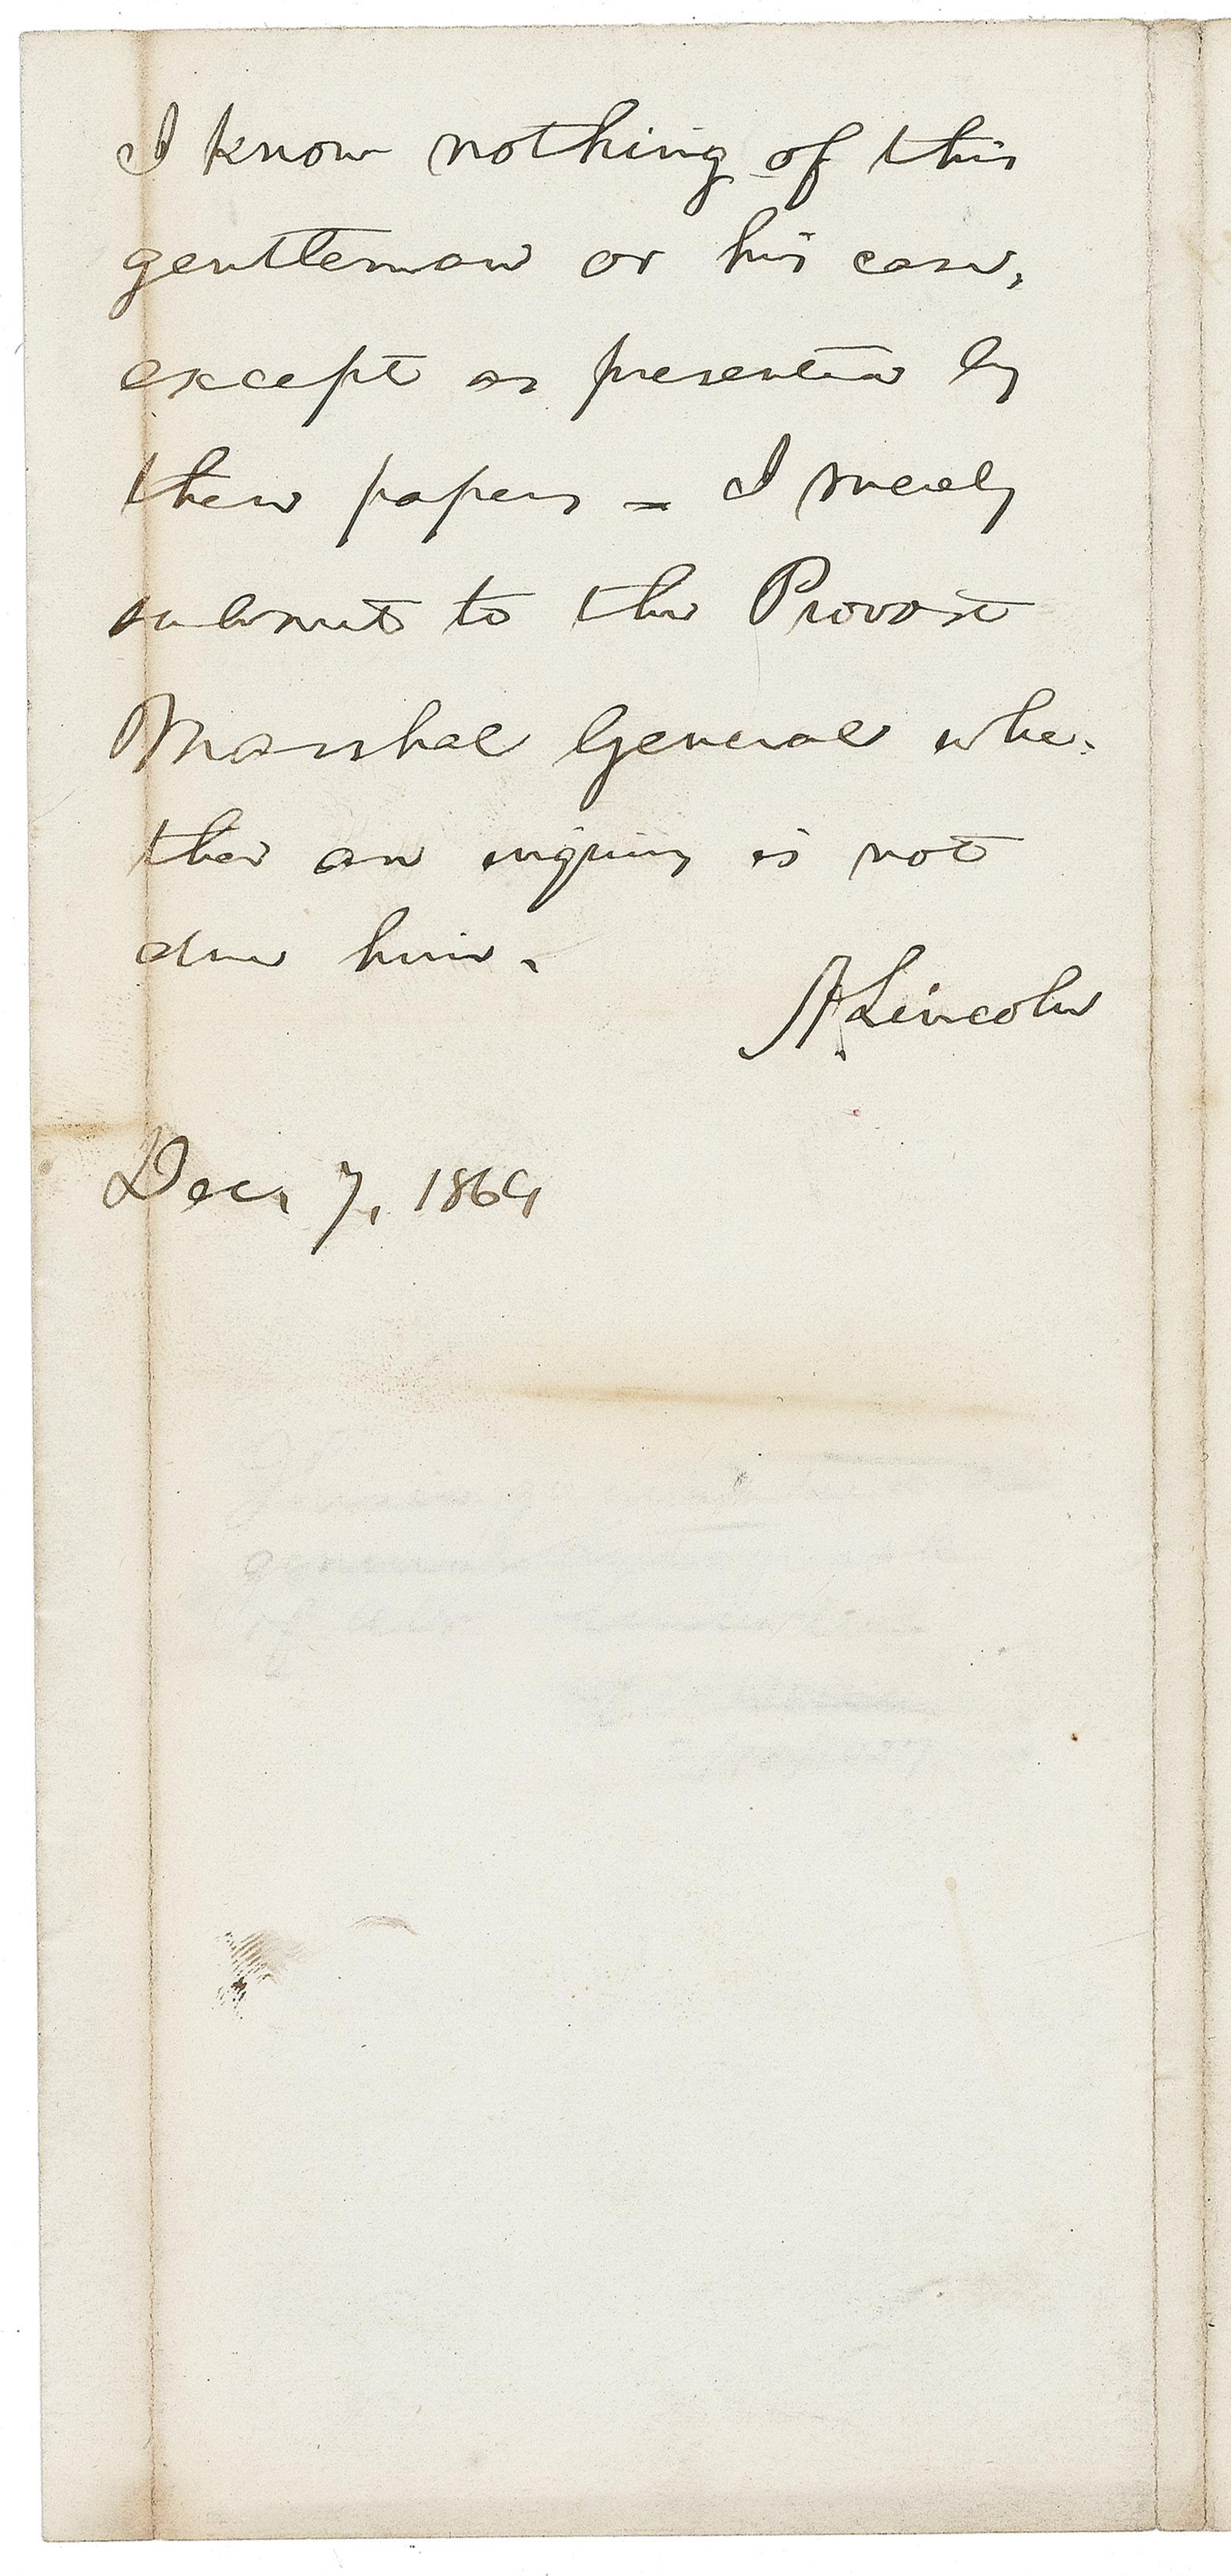 I know nothing of this
gentleman or his case,
except as presented by
these papers — I merely
submit to the Provost
Marshal General whe-
ther an inquiry is not
due him.
A. Lincoln
Dec. 7, 1864